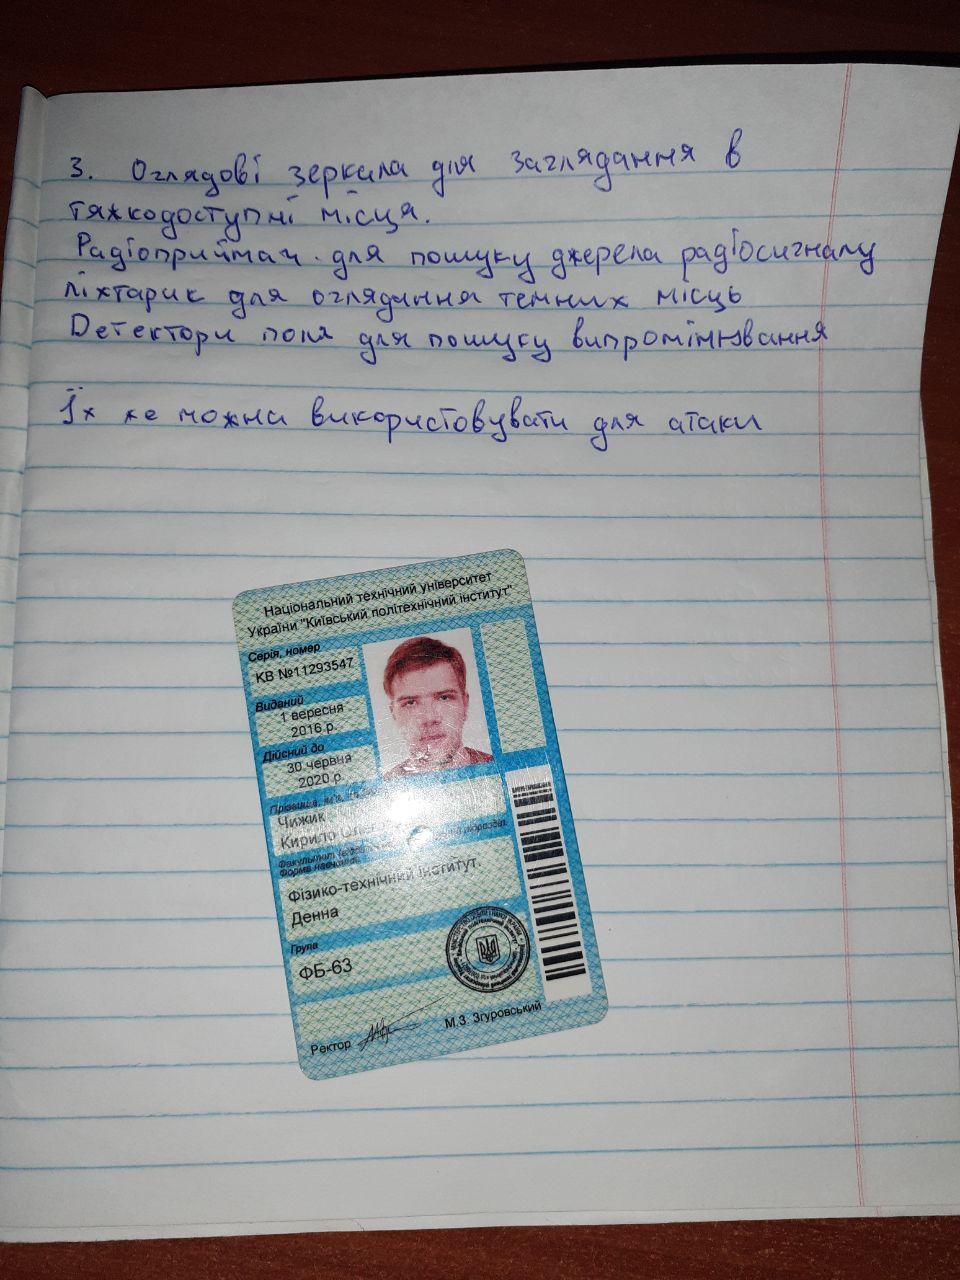 3. Оглядові зеркала для заглядання в
тяжкодоступні місця.
Радіоприймач для пошуку джерела радіосигналу
Ліхтарик для оглядання темних місць
Детектори поля для пошуку випромінювання
Їх не можна використовувати для атаки
Національний технічний університет
України "Київський політехнічний інститут"
Серія, номер
КВ №11293547
Виданий
1 вересня
2016 р.
Дійсний до
30 червня
2020 р.
Прізвище, ім'я,
Чижик
Кирило
Факультет
підрозділ.
Форма навчання
Фізико-технічний інститут.
Денна
Група
ФБ-63
Ректор
М.З. Згуровський